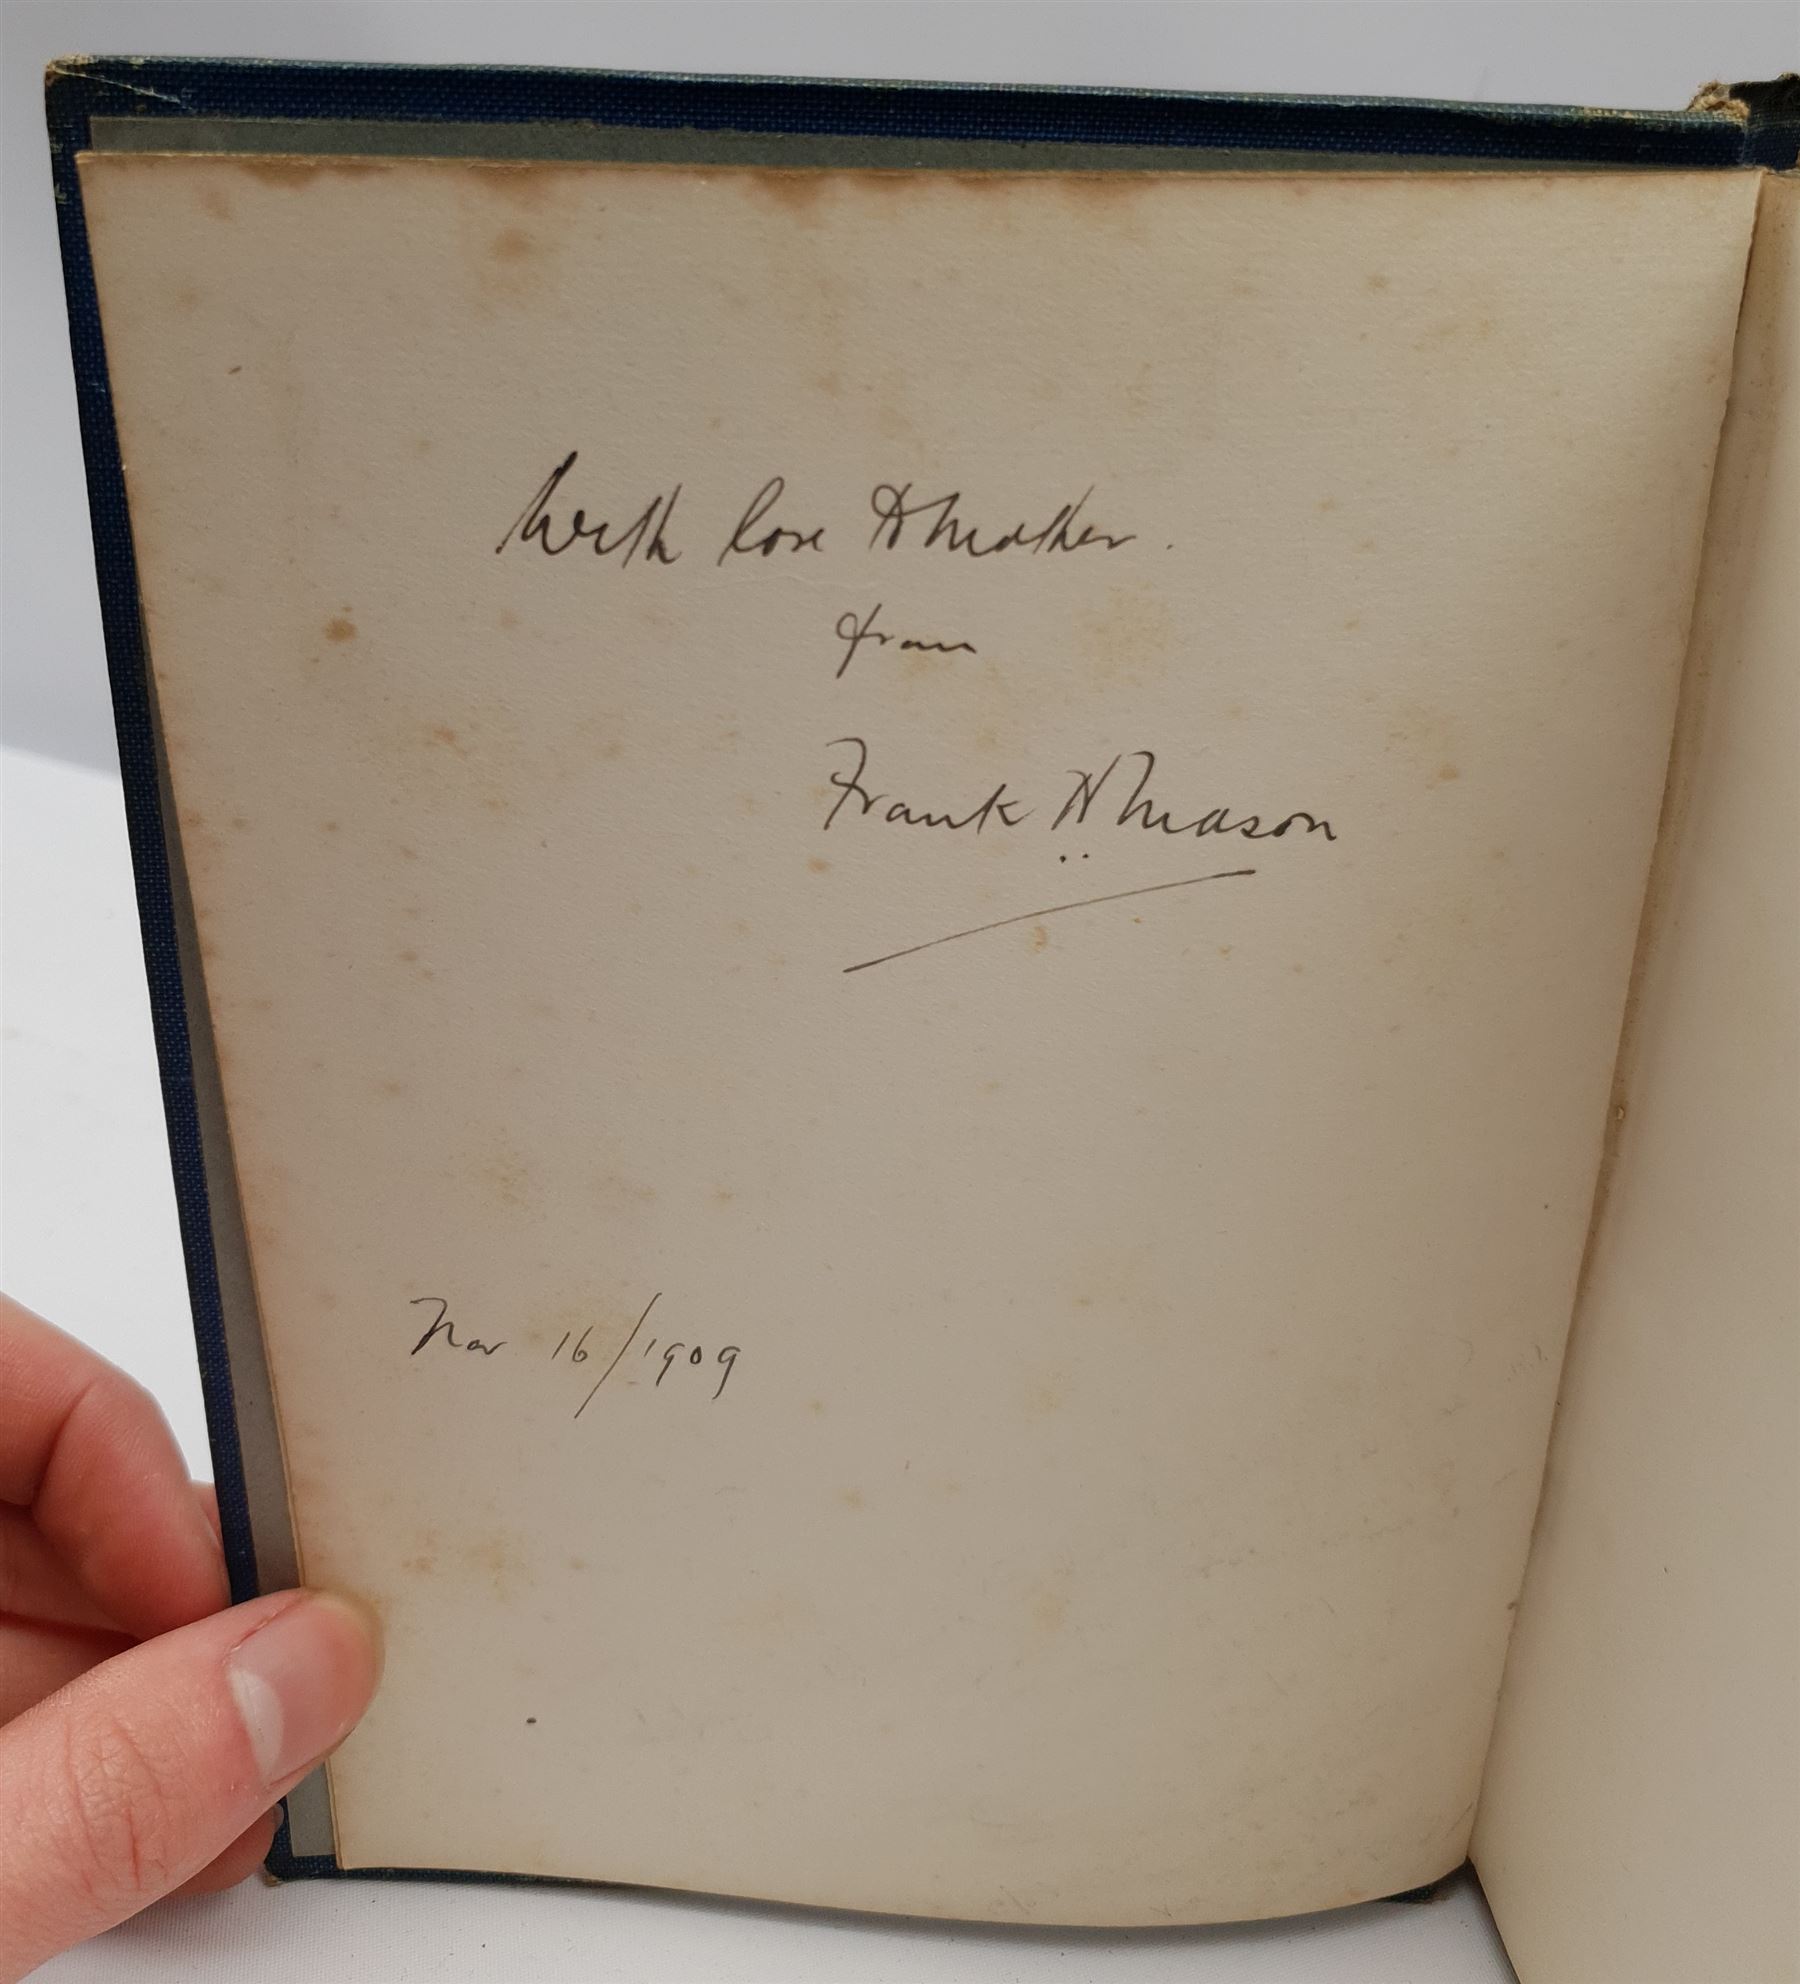 With love to Mother.
from
Frank H Mason
Nov 16/1909